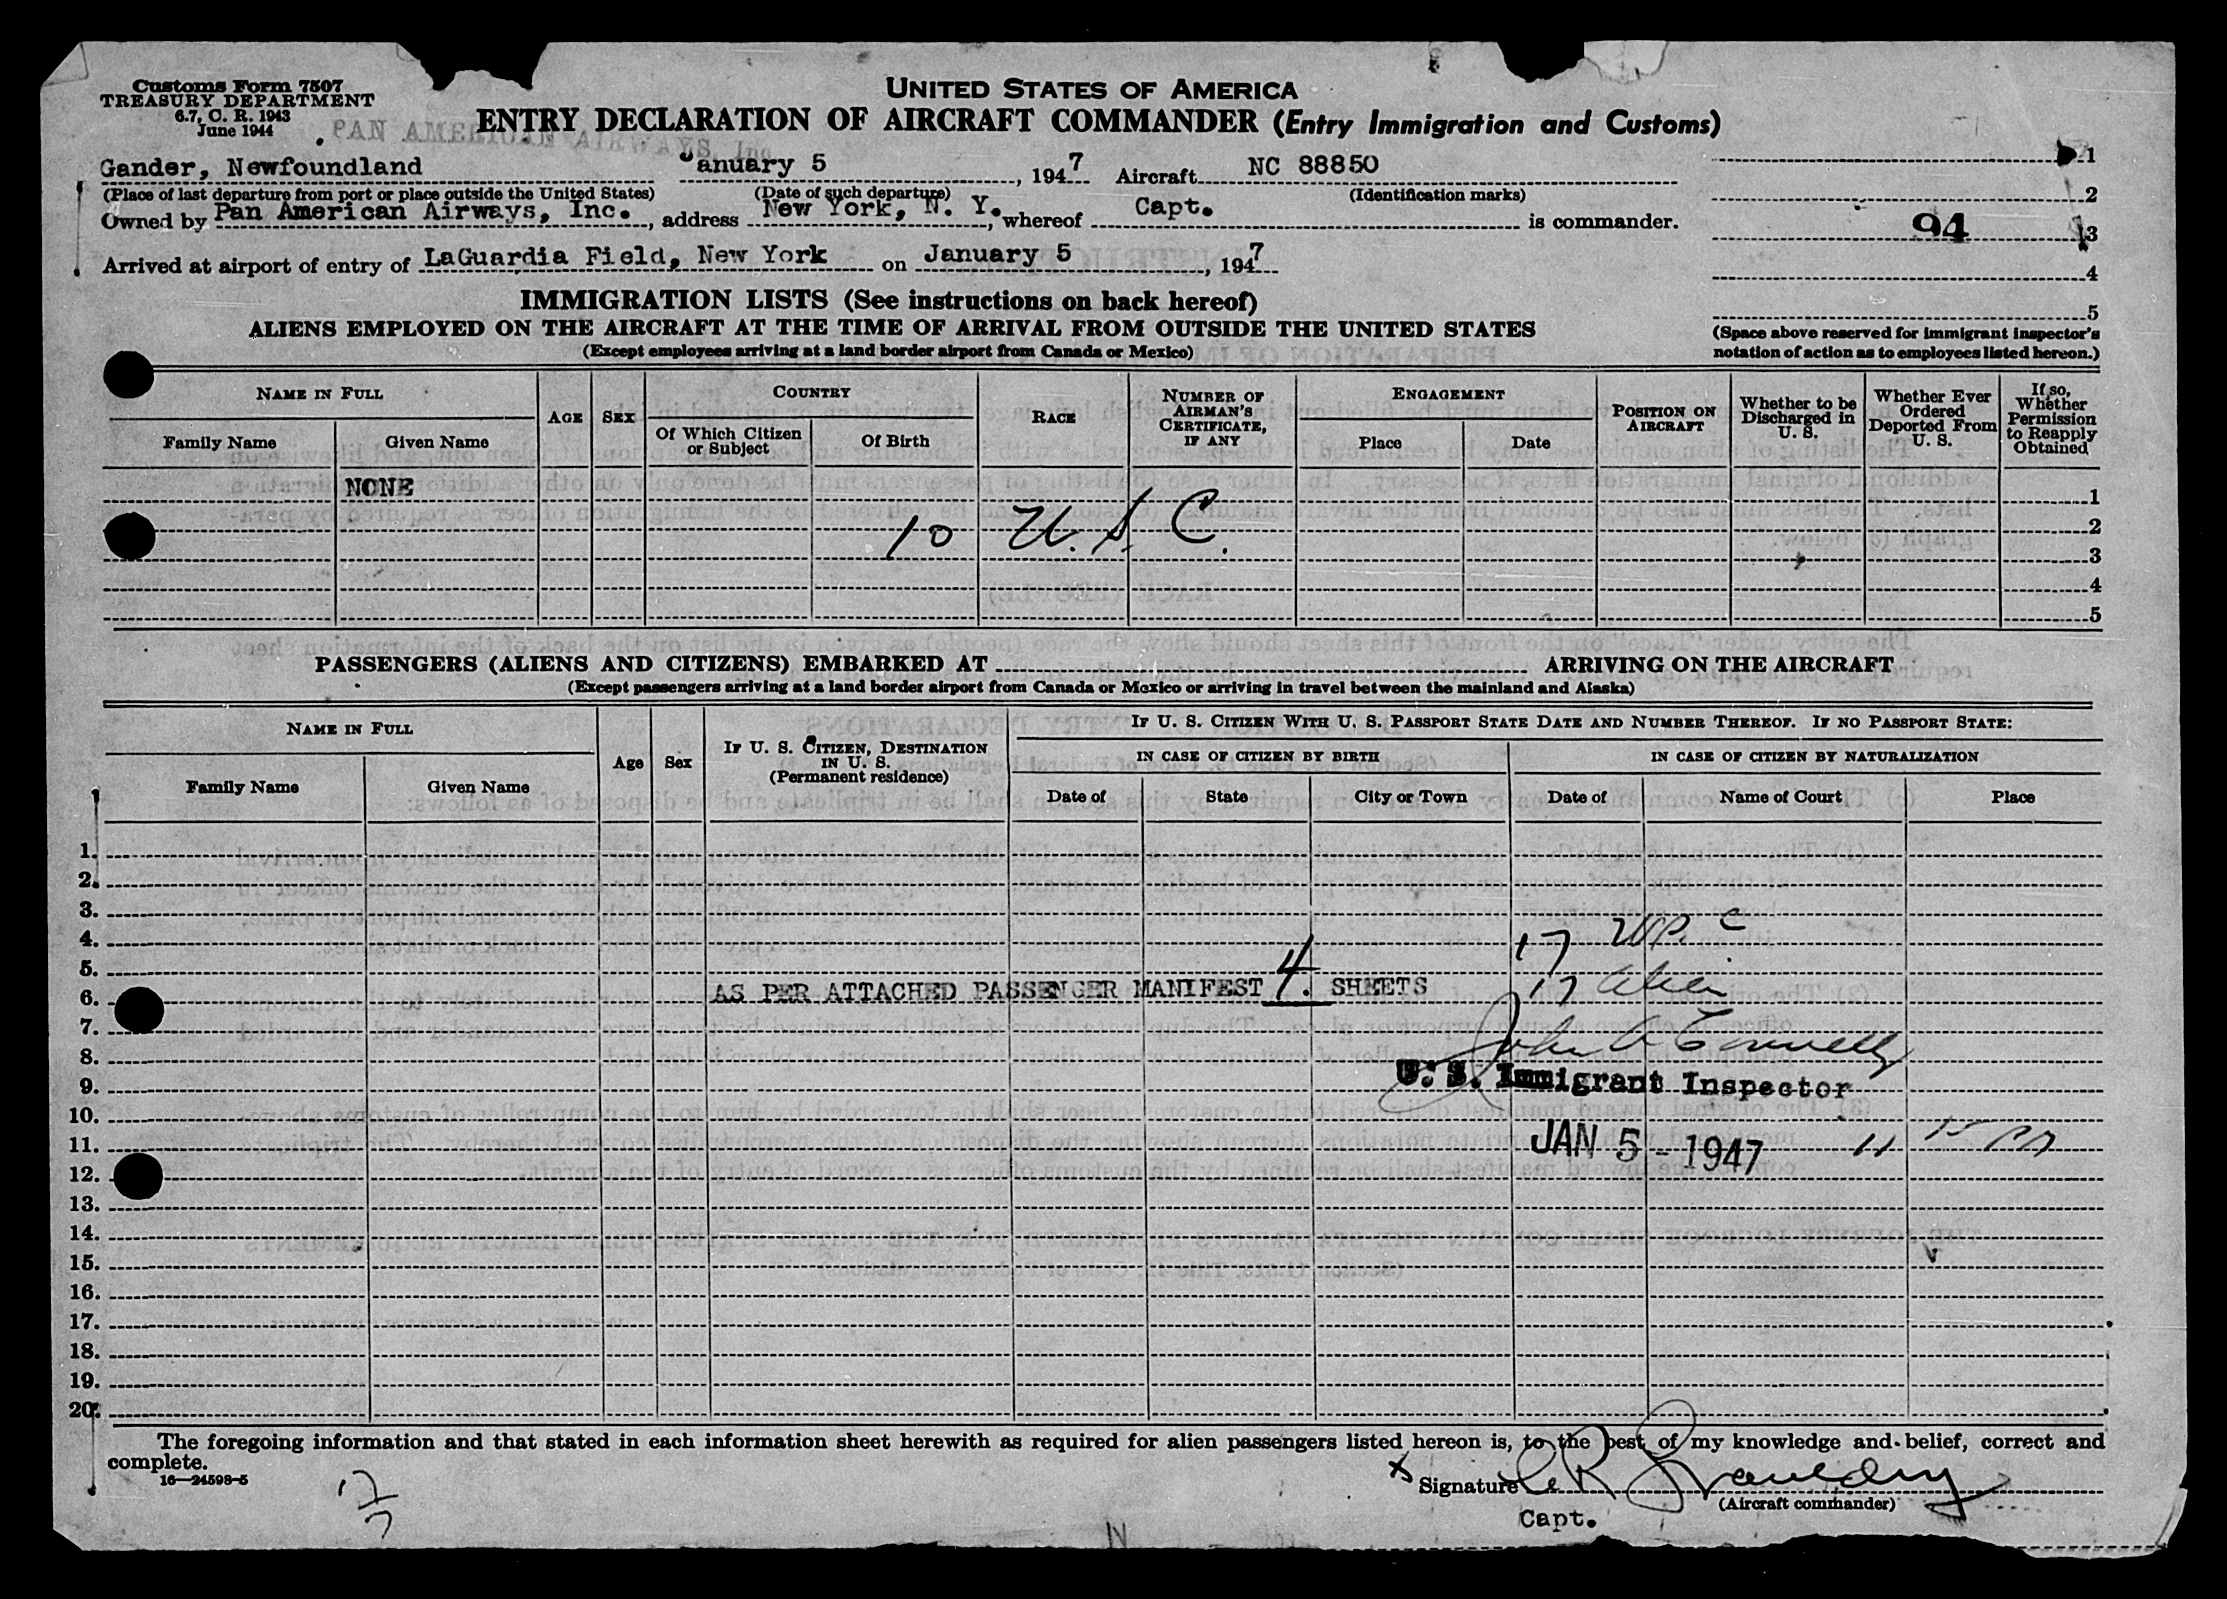 Customs Form 7507
TREASURY DEPARTMENT
6.7, C. R. 1943
June 1944
PAN AMERICAN AIRWAYS, Inc
UNITED STATES OF AMERICA
ENTRY DECLARATION OF AIRCRAFT COMMANDER (Entry Immigration and Customs)
Gander, Newfoundland anuary 5, 1947 Aircraft NC 88850
(Place of last departure from port or place outside the United States) (Date of such departure) (Identification marks)
Owned by Pan American Airways, Inc., address New York, N. Y., whereof Capt. is commander.
Arrived at airport of entry of LaGuardia Field, New York on January 5, 1947
1
2
94 3
4
5
(Space above reserved for immigrant inspector's notation of action as to employees listed hereon.)
IMMIGRATION LISTS (See instructions on back hereof)
ALIENS EMPLOYED ON THE AIRCRAFT AT THE TIME OF ARRIVAL FROM OUTSIDE THE UNITED STATES
(Except employees arriving at a land border airport from Canada or Mexico)
NAME IN FULL
Family Name Given Name
AGE SEX
COUNTRY
Of Which Citizen or Subject
Of Birth
RACE
NUMBER OF AIRMAN'S CERTIFICATE, IF ANY
ENGAGEMENT
Place Date
POSITION ON AIRCRAFT
Whether to be Discharged in U. S.
Whether Ever Ordered Deported From U. S.
If so, Whether Permission to Reapply Obtained
NONE 1
10 U. S. C. 2
3
4
5
PASSENGERS (ALIENS AND CITIZENS) EMBARKED AT ARRIVING ON THE AIRCRAFT
(Except passengers arriving at a land border airport from Canada or Mexico or arriving in travel between the mainland and Alaska)
NAME IN FULL
Family Name Given Name
Age Sex
IF U. S. CITIZEN, DESTINATION IN U. S.
(Permanent residence)
IF U. S. CITIZEN WITH U. S. PASSPORT STATE DATE AND NUMBER THEREOF. IF NO PASSPORT STATE:
IN CASE OF CITIZEN BY BIRTH IN CASE OF CITIZEN BY NATURALIZATION
Date of State City or Town Date of Name of Court Place
1.
2.
3.
4. 17
5.
6. AS PER ATTACHED PASSENGER MANIFEST 4. SHEETS 17 Alien
7.
8. John A Connelly
9. U. S. Immigrant Inspector
10.
11. JAN 5 - 1947 11
12.
13.
14.
15.
16.
17.
18.
19.
20.
The foregoing information and that stated in each information sheet herewith as required for alien passengers listed hereon is, to the best of my knowledge and belief, correct and
complete.
16—24598-5
17
7
x Signature
(Aircraft commander)
Capt.